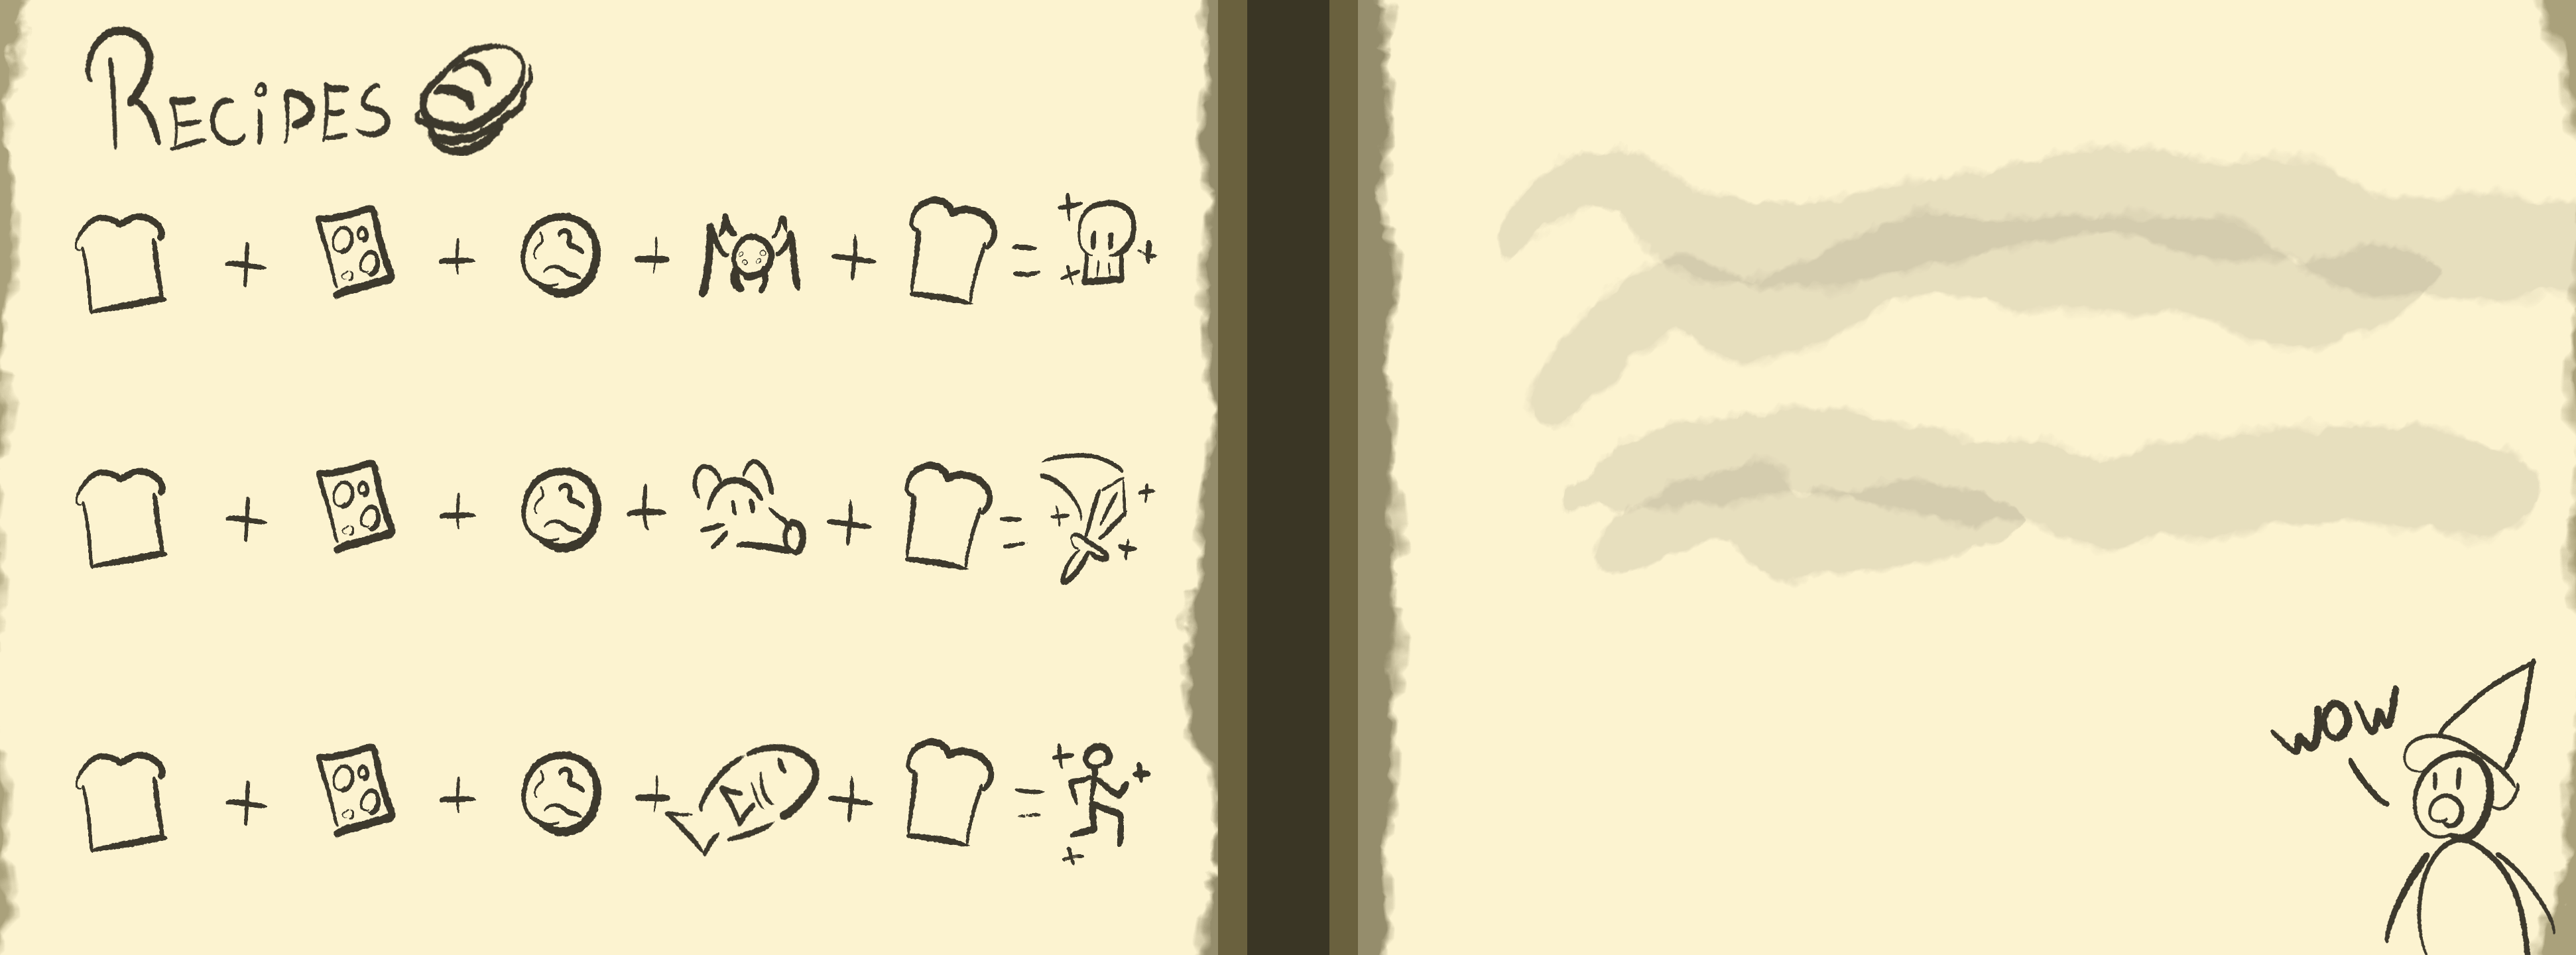 RECiPES
+ + + + =
+ + + + =
+ + + + =
WOW